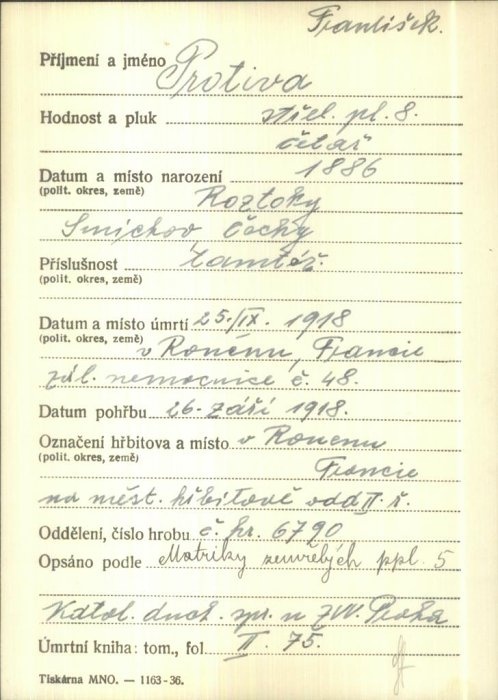 František.
Příjmení a jméno Protiva
Hodnost a pluk střel. pl. 8.
četař
Datum a místo narození 1886
(polit. okres, země) Roztoky
Smíchov Čechy
Příslušnost tamtéž.
(polit. okres, země)
Datum a místo úmrtí 25./IX. 1918
(polit. okres, země) v Rouenu, Francie
zál. nemocnice č. 48.
Datum pohřbu 26. září 1918.
Označení hřbitova a místo v Rouenu
(polit. okres, země)
Francie
na měst. hřbitově odd II. ř.
Oddělení, číslo hrobu č. hr. 6790
Opsáno podle Matriky zemřelých ppl. 5
Katol. duch. spr. u ZVV. Praha
Úmrtní kniha: tom., fol. II. 75.
Tiskárna MNO. — 1163-36.